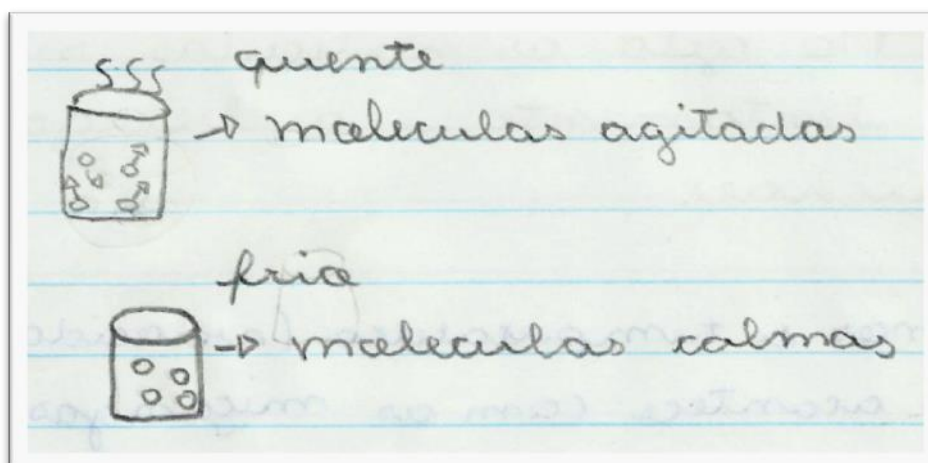 quente
→ moleculas agitadas
fria
→ moleculas calmas